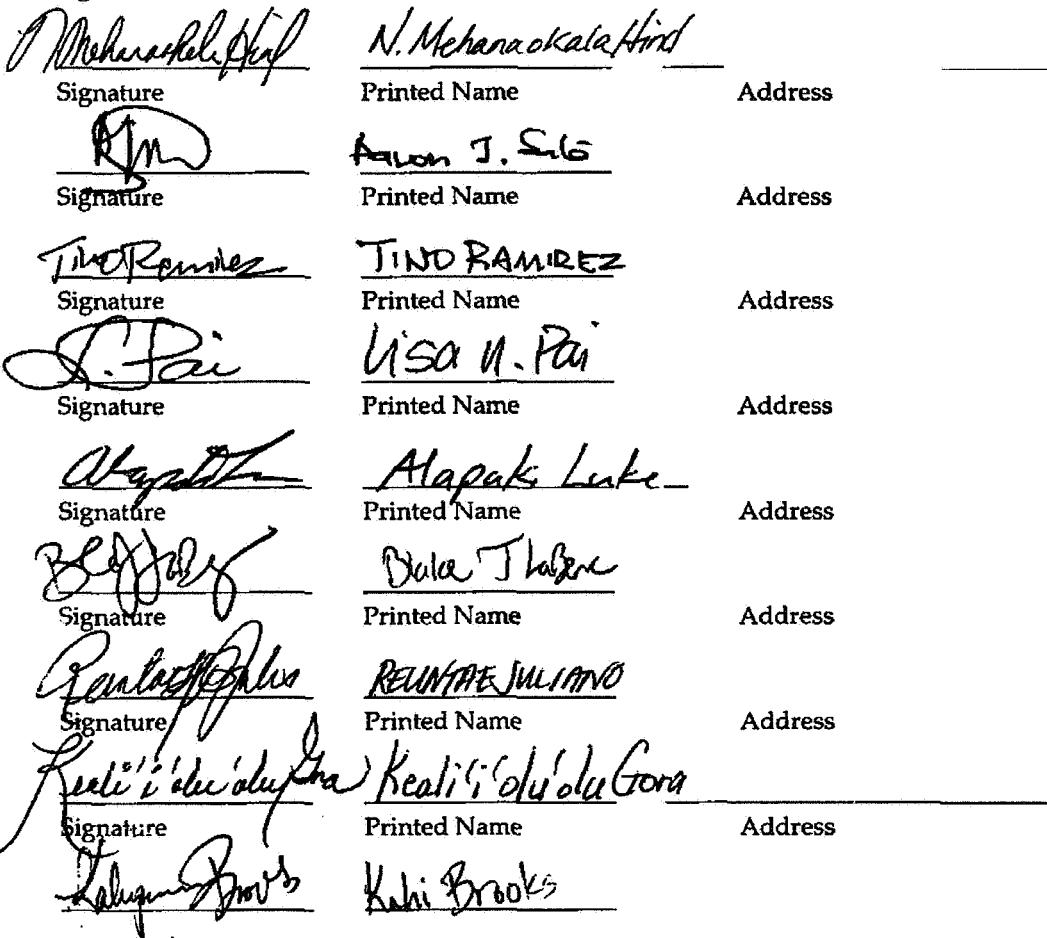 N. Mehanaokala Hind N. Mehanaokala Hind
Signature Printed Name Address
Aaron J.
Signature Printed Name Address
Tino Ramirez TINO RAMIREZ
Signature Printed Name Address
L. Pai Lisa N. Pai
Signature Printed Name Address
Alapaki Luke
Signature Printed Name Address
Blake J
Signature Printed Name Address
JULIANO
Signature Printed Name Address
Keali'i'olu'olu Gora Keali'i'olu'olu Gora
Signature Printed Name Address
Brooks Kahi Brooks